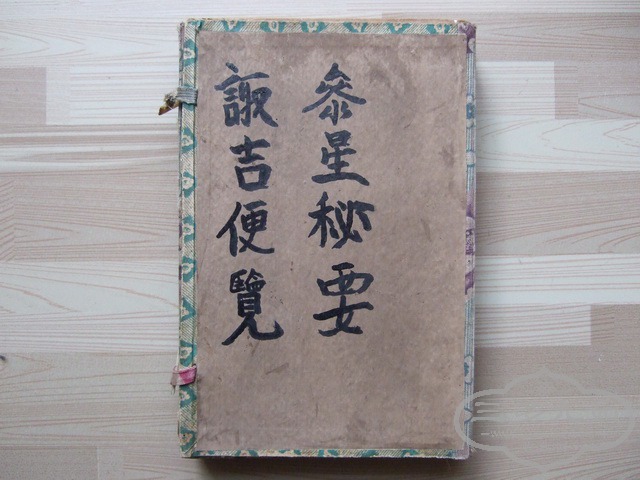 参星秘要
諏吉便覽